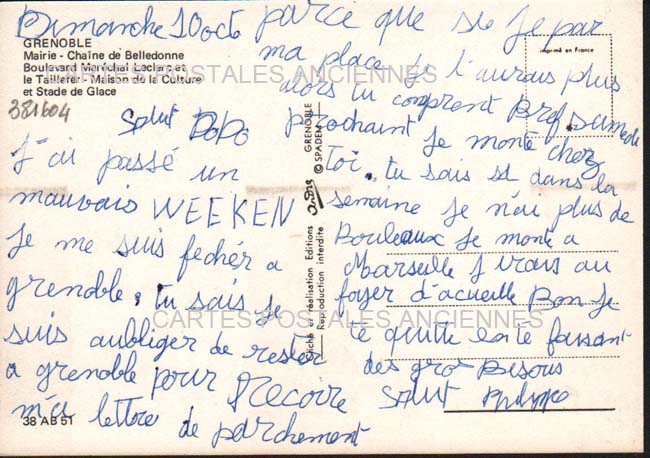 Dimanche 10 octo
GRENOBLE
Mairie - Chaîne de Belledonne
Boulevard Maréchal Leclerc et
le Taillefer - Maison de la Culture
et Stade de Glace
381604
Salut DoDo
J'ai passé un
mauvais WEEKEN
Je me suis fechér a
grenoble, tu sais Je
suis aubliger de rester
a grenoble pour Recoire
m'a lettre de parchement
38 AB 51
GRENOBLE
© SPADEM
André
Cliché et réalisation Editions
Reproduction interdite
parce que si Je par
ma place Je l'aurais plus
alors tu comprent Bref samedie
prochaint Je monte chez
Toi. tu sais si dans la
semaine Je n'ai plus de
Bouleaux Je monte a
Marseille J'irais au
foyer d'acueille Bon Je
te quitte en te faisant
des gros Besous
Salut Philippe
imprimé en France
CARTES POSTALES ANCIENNES
CARTES POSTALES ANCIENNES